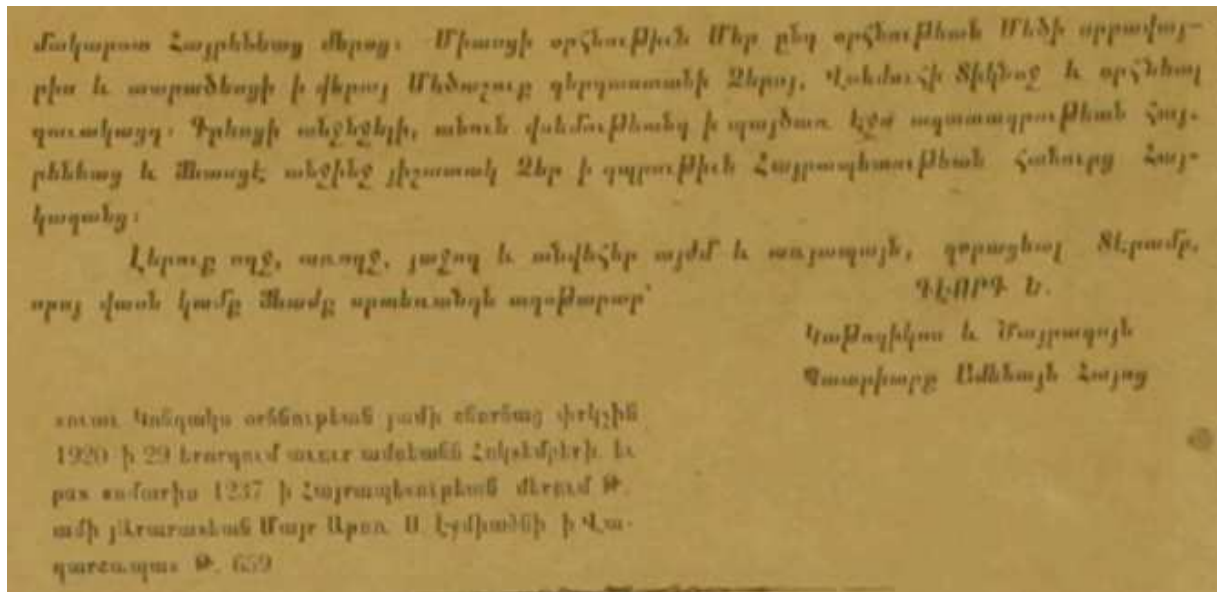 մակարոտ Հայրենեաց մերոց։ Միասցի օրհնութիւն Մեր ընդ օրհնութեան Մեծի
րիս և տարածեսցի ի վերայ Մեծաշուք գերդաստանի Ձերոյ, Վսեմուհի Տիկնոջ և օրհնեալ
զաւակացդ։ Գրեսցի անջնջելի, անուն վսեմութեանդ ի պայծառ էջս ազատագրութեան Հայ-
րենեաց և մնասցէ անջինջ յիշատակ Ձեր ի դպրութիւն Հայրապետութեան հանուրց Հայ-
կազանց։
Լերուք ողջ, առողջ, յաջող և անվեհեր այժմ և առյապայն, զօրացեալ Տէրամբ,
որոյ վասն կամք մնամք աղօթարար՝
ԳԷՈՐԳ Ե.
Կաթողիկոս և Ծայրագոյն
Պատրիարք Ամենայն Հայոց
տուաւ Կոնդակս օրհնութեան յամի տեառնաց փրկչին
1920 ի 29 երորդում աւուր ամսեանն Հոկտեմբերի. եւ
ըստ տոմարիս 1237 ի Հայրապետութեան մերում Թ.
ամի յԱրարատեան Մայր Աթոռ Ս. Էջմիածնի ի Վա-
ղարշապատ Թ. 659